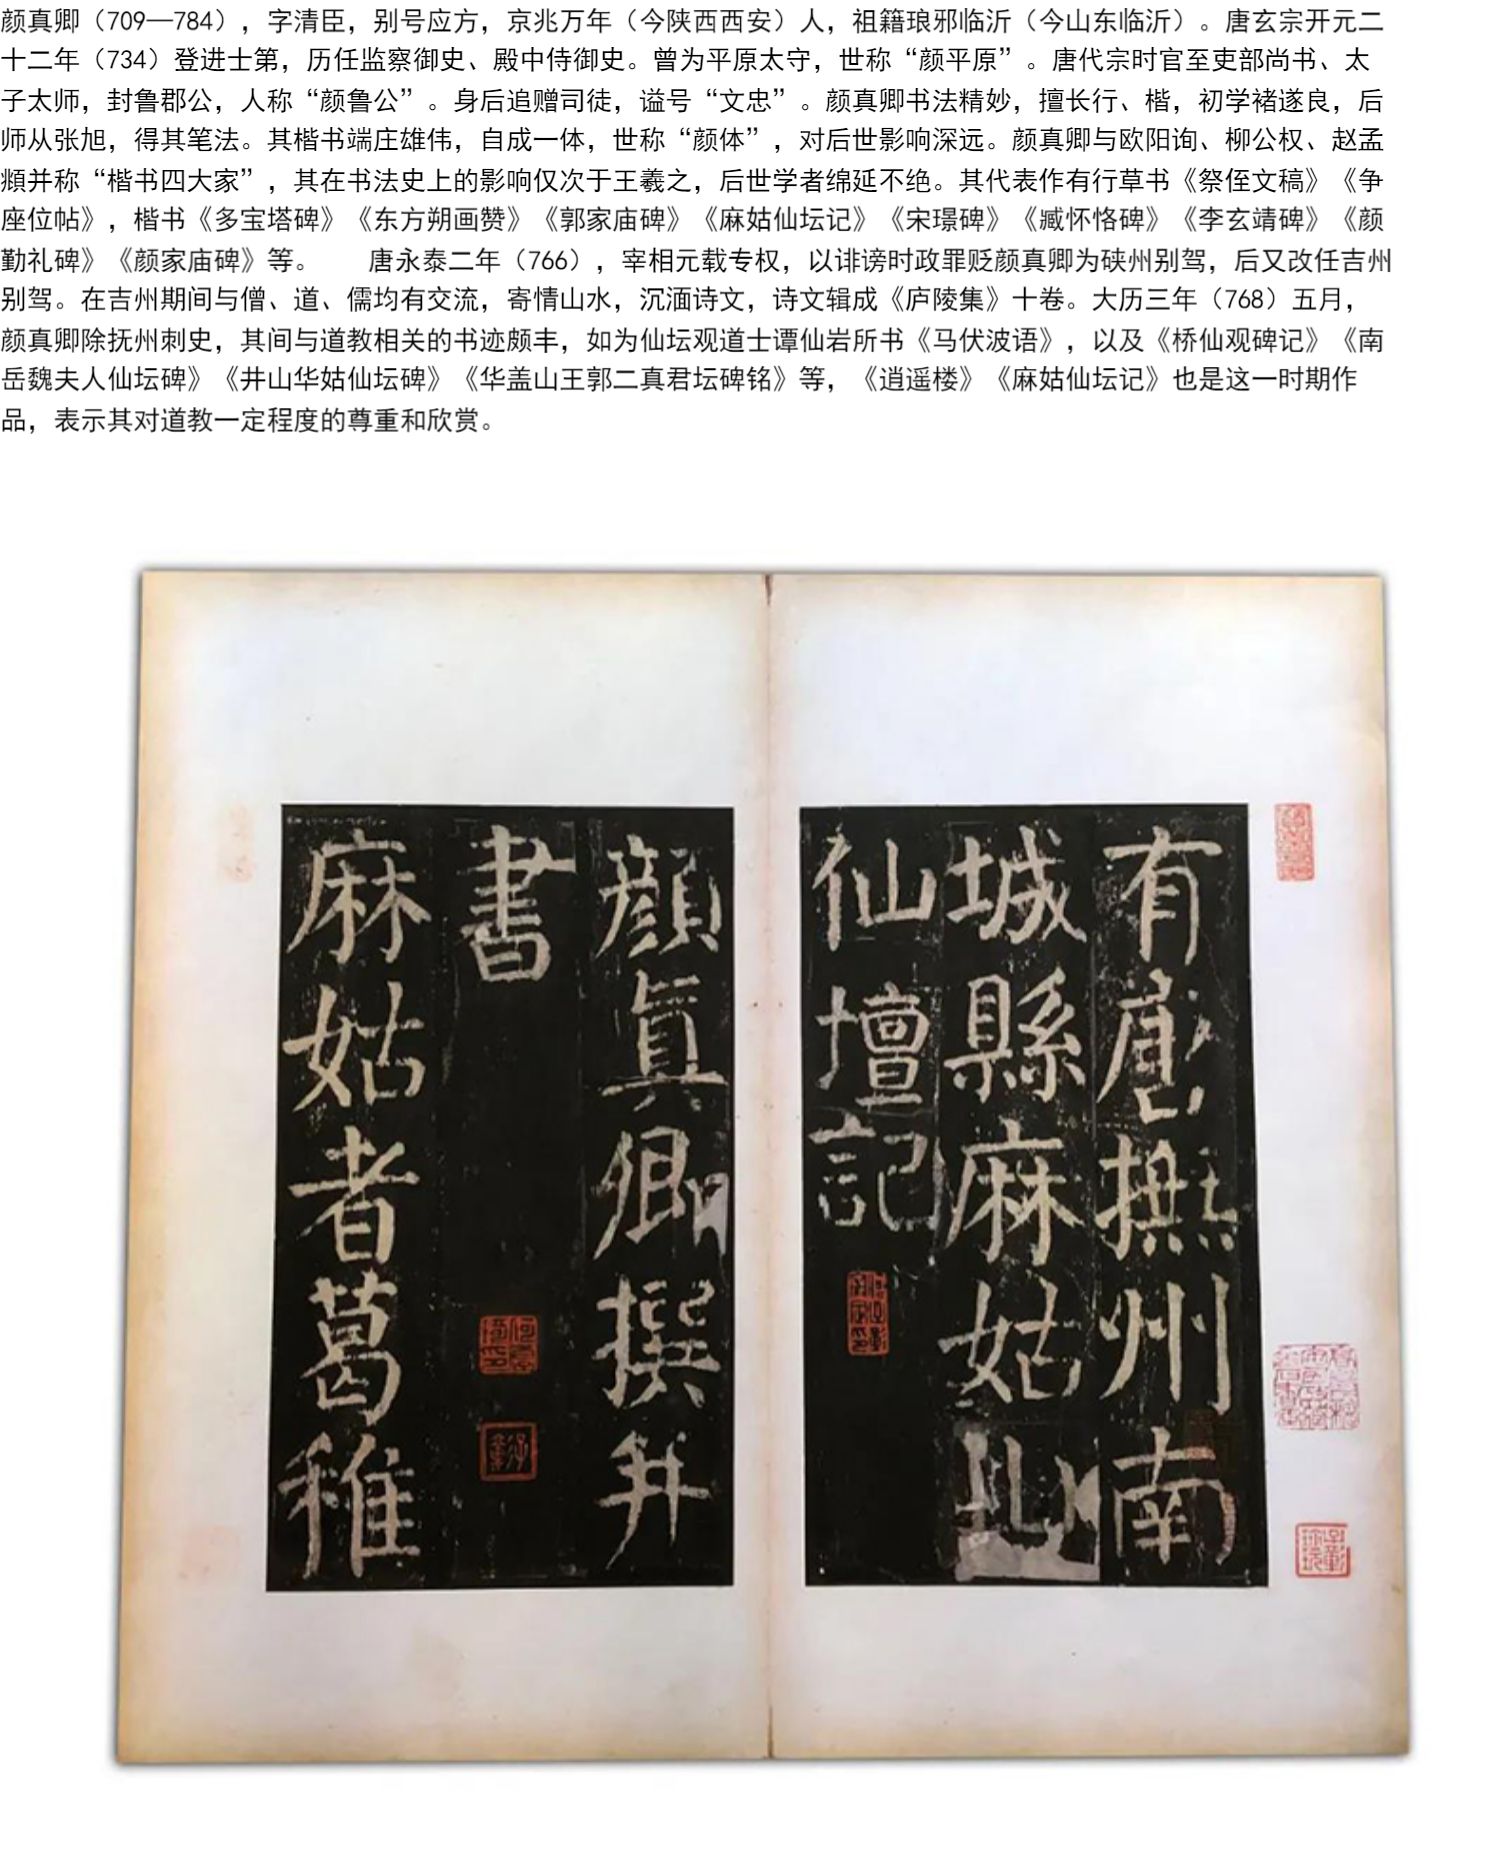 颜真卿（709—784），字清臣，别号应方，京兆万年（今陕西西安）人，祖籍琅邪临沂（今山东临沂）。唐玄宗开元二
十二年（734）登进士第，历任监察御史、殿中侍御史。曾为平原太守，世称“颜平原”。唐代宗时官至吏部尚书、太
子太师，封鲁郡公，人称“颜鲁公”。身后追赠司徒，谥号“文忠”。颜真卿书法精妙，擅长行、楷，初学褚遂良，后
师从张旭，得其笔法。其楷书端庄雄伟，自成一体，世称“颜体”，对后世影响深远。颜真卿与欧阳询、柳公权、赵孟
頫并称“楷书四大家”，其在书法史上的影响仅次于王羲之，后世学者绵延不绝。其代表作有行草书《祭侄文稿》《争
座位帖》，楷书《多宝塔碑》《东方朔画赞》《郭家庙碑》《麻姑仙坛记》《宋璟碑》《臧怀恪碑》《李玄靖碑》《颜
勤礼碑》《颜家庙碑》等。　　唐永泰二年（766），宰相元载专权，以诽谤时政罪贬颜真卿为硖州别驾，后又改任吉州
别驾。在吉州期间与僧、道、儒均有交流，寄情山水，沉湎诗文，诗文辑成《庐陵集》十卷。大历三年（768）五月，
颜真卿除抚州刺史，其间与道教相关的书迹颇丰，如为仙坛观道士谭仙岩所书《马伏波语》，以及《桥仙观碑记》《南
岳魏夫人仙坛碑》《井山华姑仙坛碑》《华盖山王郭二真君坛碑铭》等，《逍遥楼》《麻姑仙坛记》也是这一时期作
品，表示其对道教一定程度的尊重和欣赏。
有唐撫州南
城縣麻姑山
仙壇記
顏真卿撰并
書
麻姑者葛稚